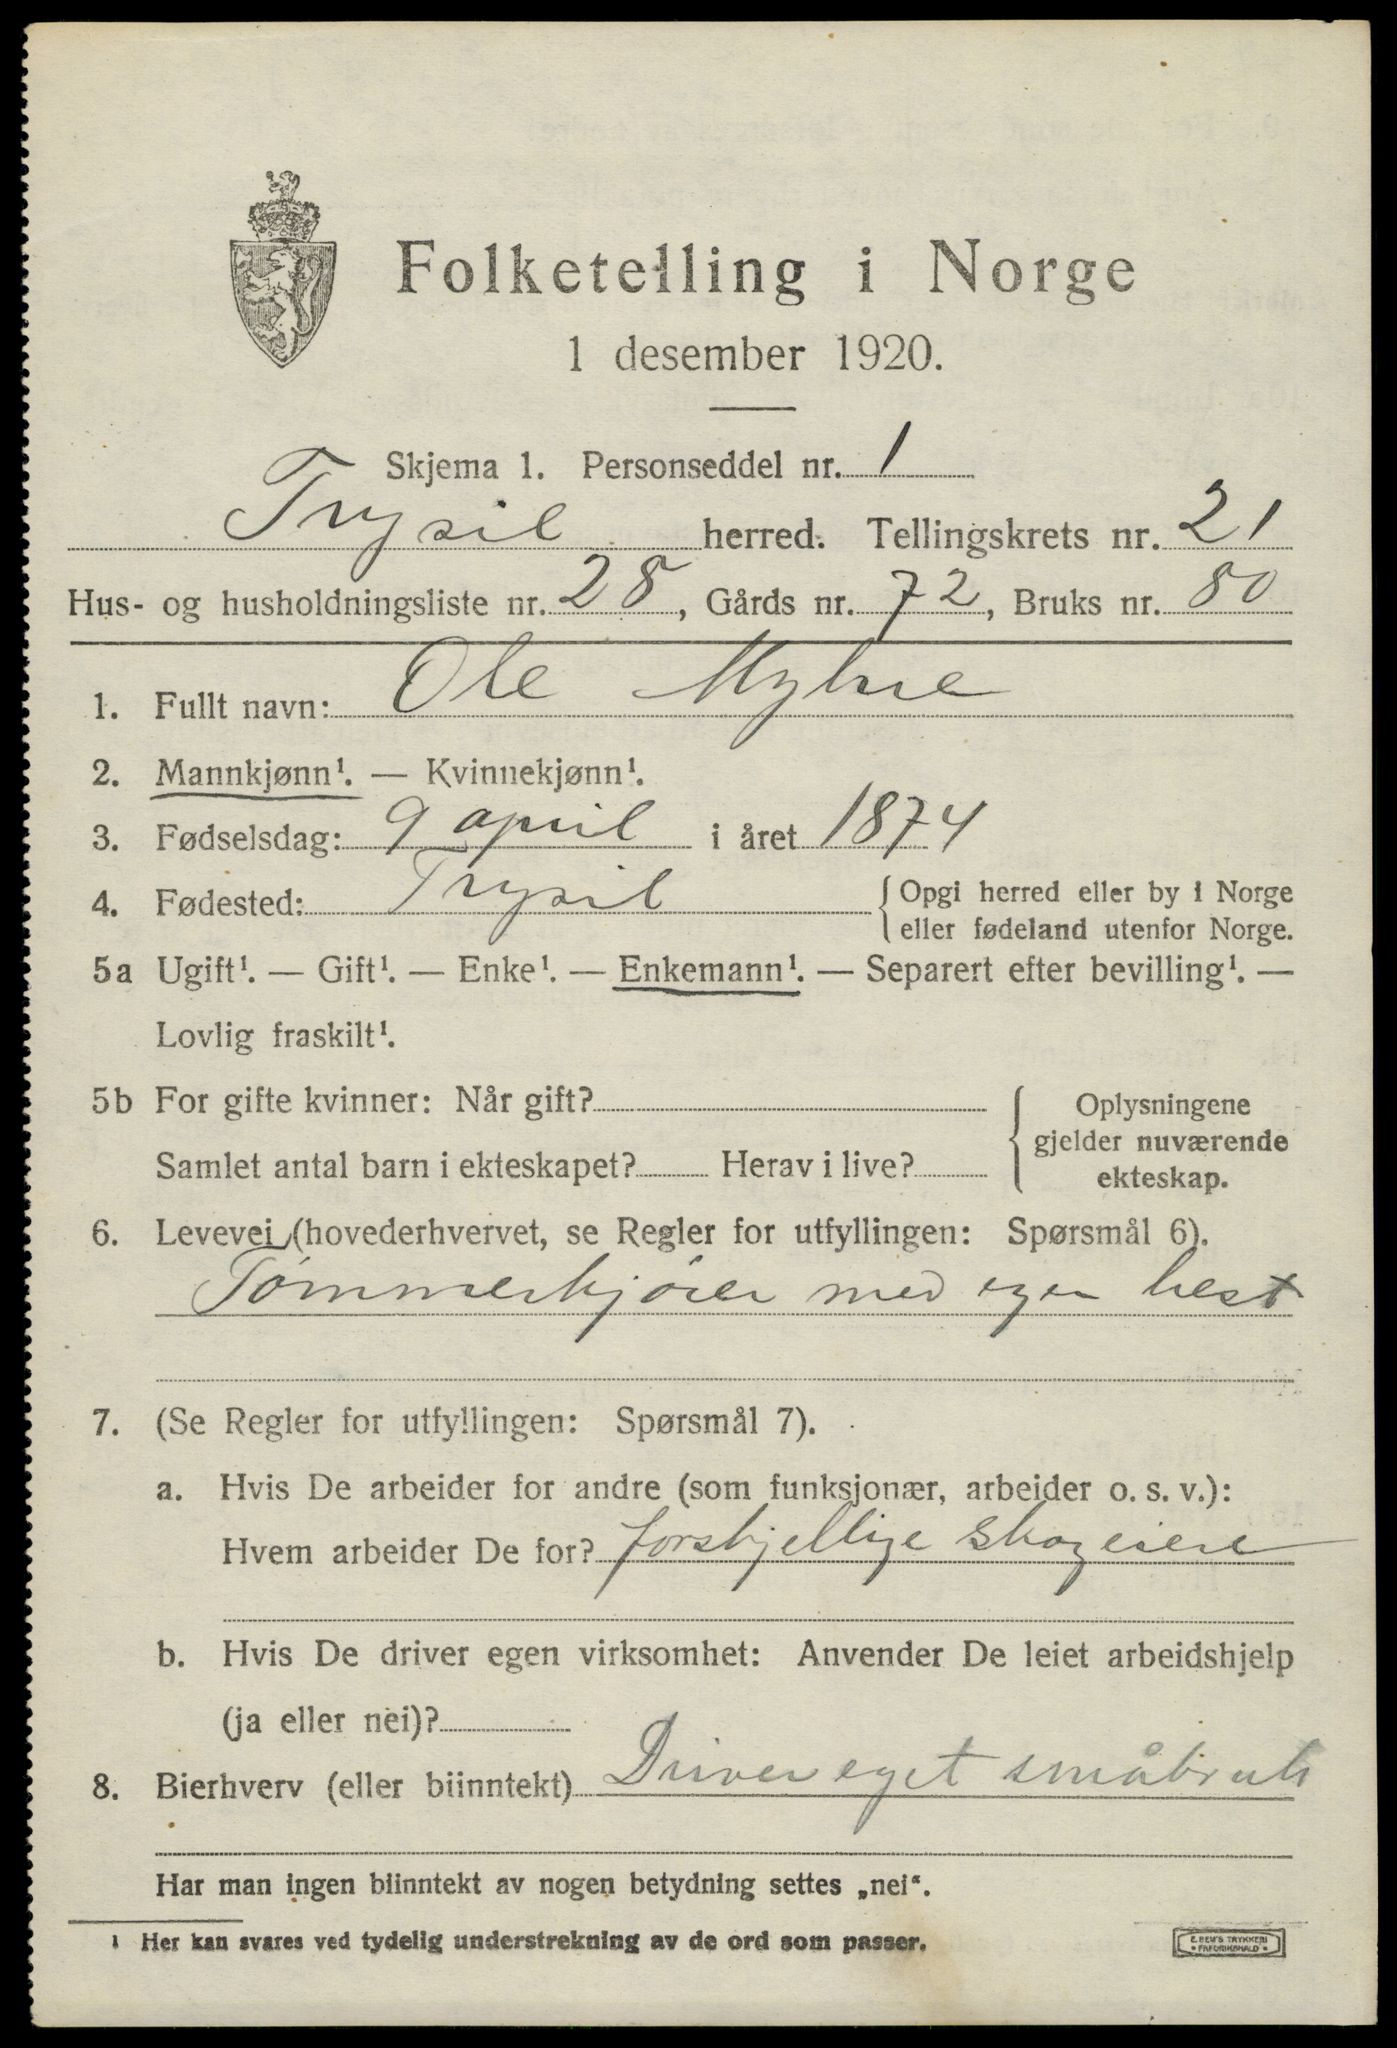 Folketelling i Norge
1 desember 1920.
Skjema 1. Personseddel nr. 1
Trysil herred. Tellingskrets nr. 21
Hus- og husholdningsliste nr. 28, Gårds nr. 72, Bruks nr. 80
1. Fullt navn: Ole Myhre
2. Mannkjønn¹. — Kvinnekjønn¹.
3. Fødselsdag: 9 april i året 1874
4. Fødested: Trysil { Opgi herred eller by i Norge
eller fødeland utenfor Norge.
5a Ugift¹. — Gift¹. — Enke¹. — Enkemann¹. — Separert efter bevilling¹. —
Lovlig fraskilt¹.
5b For gifte kvinner: Når gift? { Oplysningene
gjelder nuværende
Samlet antal barn i ekteskapet? Herav i live? ekteskap.
6. Levevei (hovederhvervet, se Regler for utfyllingen: Spørsmål 6).
Tømmerkjører med egen hest
7. (Se Regler for utfyllingen: Spørsmål 7).
a. Hvis De arbeider for andre (som funksjonær, arbeider o. s. v.):
Hvem arbeider De for? forskjellige skogeiere
b. Hvis De driver egen virksomhet: Anvender De leiet arbeidshjelp
(ja eller nei)?
8. Bierhverv (eller biinntekt) Driver eget småbruk
Har man ingen biinntekt av nogen betydning settes „nei“.
¹ Her kan svares ved tydelig understrekning av de ord som passer.
E. SEM'S TRYKKERI
* FREDRIKSHALD *